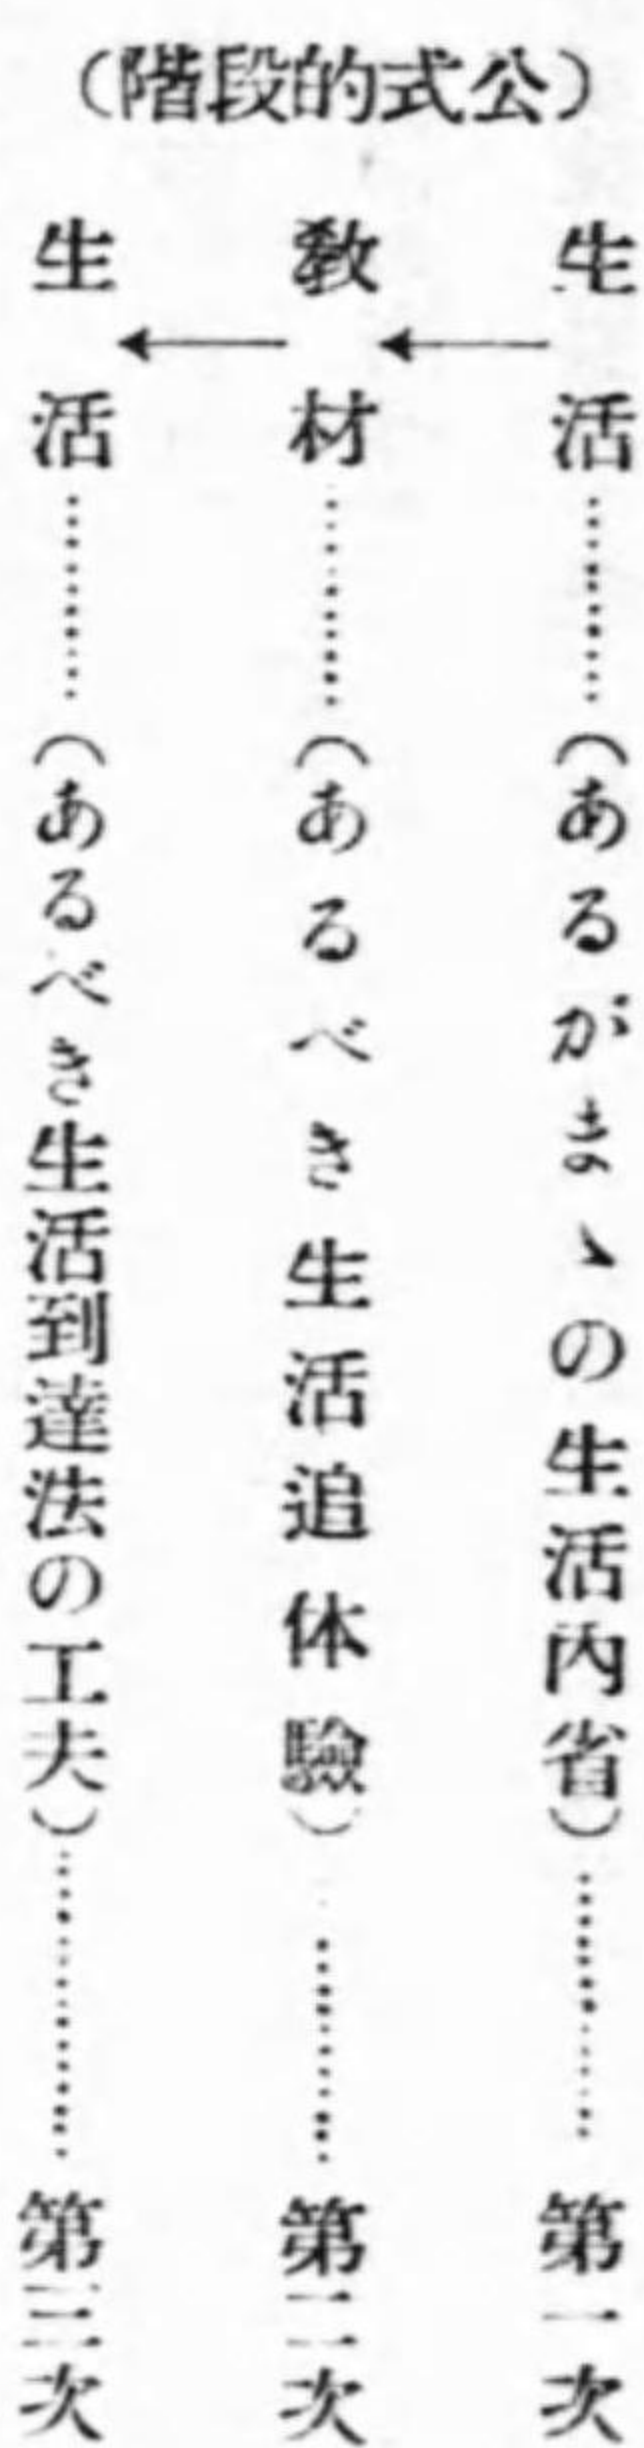 （公式的段階）
生活…………（あるがまゝの生活内省）…………第一次
教材…………（あるべき生活追体驗）…………第二次
生活…………（あるべき生活到達法の工夫）…………第三次